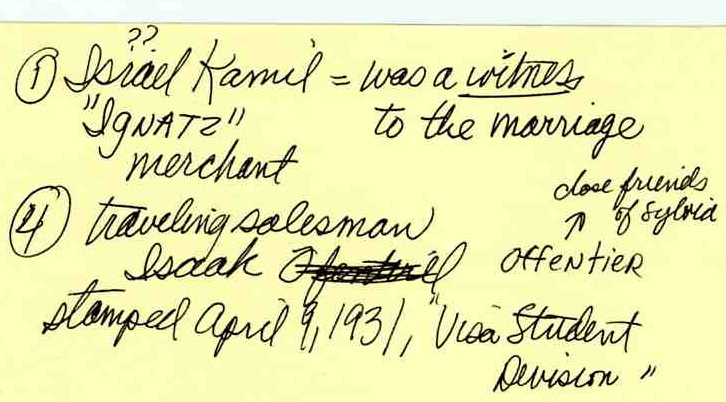 ??
① Israel Kamil = was a witness
"IGNATZ" to the marriage
merchant
④ traveling salesman
close friends
↑ of Sylvia
Isaak OFFENTIER
stamped April 9, 1931, "Visa Student
Devision"